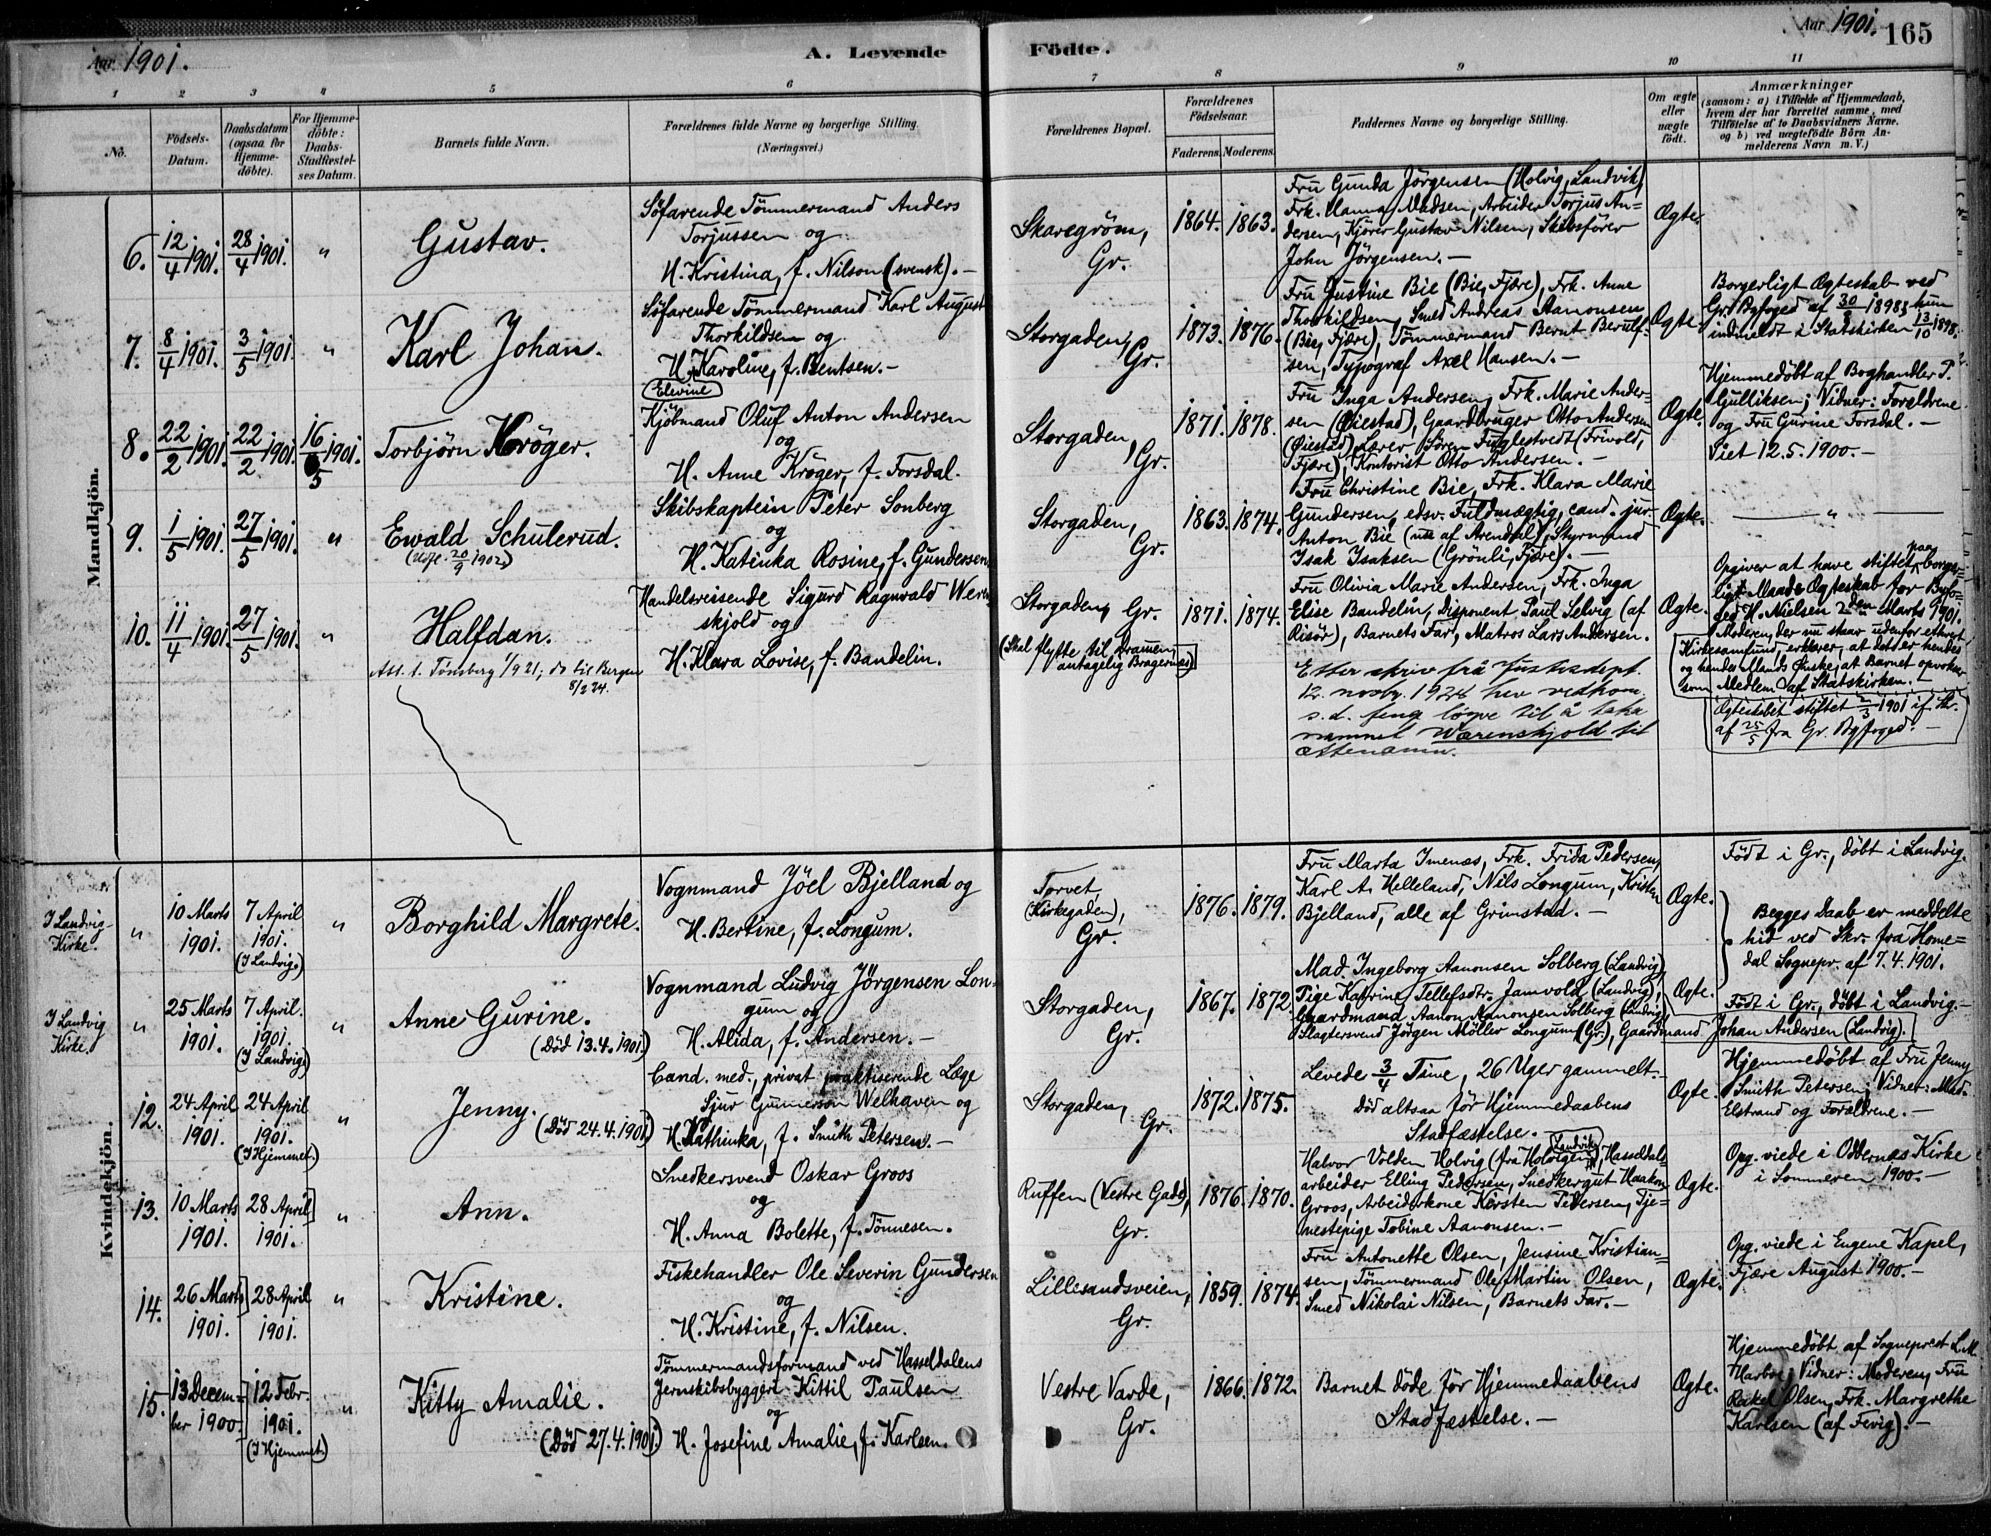 Aar 1901.
A. Levende
Födte.
Aar 1901.
165
1
2
3
4
5
6
7
8
9
10
11
No.
Födsels-
Datum.
Daabsdatum
(ogsaa for
Hjemme-
døbte).
For Hjemme-
døbte:
Daabs-
Stadfæstel-
ses Datum.
Barnets fulde Navn.
Forældrenes fulde Navne og borgerlige Stilling.
(Næringsvei.)
Forældrenes Bopæl.
Forældrenes
Födselsaar.
Faderens.
Moderens.
Faddernes Navne og borgerlige Stilling.
Om ægte
eller
uægte
født.
Anmærkninger
(saasom: a) i Tilfælde af Hjemmedaab,
hvem der har forrettet samme, med
Tilföielse af to Daabsvidners Navne,
og b) ved uægtefödte Börn An-
melderens Navn m. V.)
Mandkjön.
6.
12/4 1901.
28/4 1901.
"
Gustav.
Söfarende Tömmermand Anders
Torjussen og
H. Kristina, f. Nilson (svensk). -
Skaregröm,
Gr.
1864.
1863.
Fru Gunda Jörgensen (Holvig, Landvik)
Frk. Hanna Madsen, Arbeider Torjus An-
dersen, Kjörer Gustav Nilsen, Skibsförer
John Jörgensen. -
Ægte.
7.
8/4 1901.
3/5 1901
"
Karl Johan.
Söfarende Tömmermand Karl August
Thorkildsen og
H. Karoline, f. Bentsen. -
Elevine
Storgaden,
Gr.
1873.
1876.
Fru Justine Bie (Bie, Fjære), Frk. Anne
Thorkildsen, Smed Andreas Aanonsen
(Bie, Fjære), Tömmermand Bernt Berulf-
sen, Typograf Axel Hansen. -
Ægte
Borgerligt Ægteskab ved
Gr. Byfoged af 30/8 1898; hun
indmeldt i Statskirken 13/10 1898.
8.
22/2 1901.
22/2 1901.
16/5 1901.
Torbjörn Kröger.
Kjöbmand Oluf Anton Andersen
og
H. Anne Kröger, f. Forsdal.
Storgaden,
Gr.
1871.
1878.
Fru Inga Andersen, Frk. Marie Ander-
sen (Øiestad), Gaardbruger Otto Andersen
(Øiestad), Lærer Sören Fuglestvedt (Frivold,
Fjære), Kontorist Otto Andersen. -
Ægte.
Hjemmedöbt af Boghandler P.
Gulliksen; Vidner: Forældrene
og Fru Gurine Forsdal. -
Viet 12.5.1900. -
9.
1/5 1901.
27/5 1901.
"
Ewald Schulerud.
20/9 1902)
Skibskaptein Peter Sonberg
og
H. Katinka Rosine, f. Gundersen.
Storgaden,
Gr.
1863.
1874.
Fru Christine Bie, Frk. Klara Marie
Gundersen, edsv. Fuldmægtig, cand. jur.
Anton Bie (nu af Arendal), Styrmand
Isak Isaksen (Grönli, Fjære). -
Ægte.
"
10.
11/4 1901.
27/5 1901.
"
Halfdan.
Att. t. Tönsberg 1/9 21; do til Bergen
8/2 24.
Handelsreisende Sigurd Ragnvald Weren-
skjold og
H. Klara Lovise, f. Bandelin.
Storgaden, Gr.
(Skal flytte til Dramen,
antagelig Bragernæs)
1871.
1874.
Fru Olivia Marie Andersen, Frk. Inga
Elise Bandelin, Disponent Paul Selvig (af
Risör), Barnets Far, Matros Lars Andersen.
Etter skriv frå Justisdept.
12. novbr. 1924 hev vedkom.
s.d. feng löyve til å taka
namnet Wærenskjold til
ættenamn.
Ægte.
Opgiver at have stiftet paa borger-
ligt Maade Ægteskab for Byfo-
ged H. Nielsen 2den Marts 1901.
Moderen, der nu staar udenfor ethvert
Kirkesamfund, erklærer, at det er hendes
og hendes Mands Ønske, at Barnet opvokser
som Medlem af Statskirken. -
Ægteskabet stiftet 2/3 1901 if. Skr.
af 25/5 fra Gr. Byfoged. -
Kvindekjön.
I Landvig
Kirke.
"
10 Marts
1901.
7 April
1901.
(I Landvig.)
"
Borghild Margrete.
Vognmand Jöel Bjelland og
H. Bertine, f. Longum.
Torvet,
(Kirkegaden),
Gr.
1876.
1879.
Fru Marta Imenæs, Frk. Frida Pedersen,
Karl A. Helleland, Nils Longum, Kristen
Bjelland, alle af Grimstad. -
Ægte.
Födt i Gr., döbt i Landvig.
Begges Daab er meddelte
hid ved Skr. fra Home-
dal Sognepr. af 7.4.1901.
I Landvig
Kirke.
"
25 Marts
1901.
7 April.
1901.
(I Landvig)
"
Anne Gurine.
(Död 13.4.1901)
Vognmand Ludvig Jörgensen Lon-
gum og
H. Alida, f. Andersen. -
Storgaden,
Gr.
1867.
1872.
Mad. Ingeborg Aanonsen Solberg (Landvig)
Pige Katrine Tellefsdtr. Jamvold (Landvig),
Gaardmand Aanon Aanonsen Solberg (Landvig)
Slagtersvend Jörgen Möller Longum (Gr.), Gaardmand Johan Andersen (Landvig).
Ægte.
Födt i Gr., döbt i Landvig. -
12.
24 April
1901.
24 April.
1901.
(I Hjemmet.)
"
Jenny.
(Död 24.4.1901)
Cand. med., privat praktiserende Læge
Sjur Gunnerson Welhaven og
H. Kathinka, f. Smith Petersen. -
Storgaden,
Gr.
1872.
1875.
Levede 3/4 Time, 26 Uger gammelt. -
Död altsaa för Hjemmedaabens
Stadfæstelse. -
Ægte.
Hjemmedöbt af Fru Jenny
Smith Petersen; Vidner: Mad.
Elstrand og Forældrene. -
13.
10 Marts
1901.
28 April
1901.
"
Ann.
Snedkersvend Oskar Groos
og
H. Anna Bolette, f. Tönnesen.
Ruffen (Vestre Gade),
Gr.
1876.
1870.
Halvor Volden Holvig (fra Holvigen, Landvik), Hasseldals-
arbeider Elling Pedersen, Snedkergut Haakon
Groos, Arbeiderkone Kirsten Pedersen, Tje-
nestepige Tobine Aanonsen. -
Ægte.
Opg. viede i Oddernæs Kirke
i Sommeren 1900. -
14.
26 Marts
1901.
28 April
1901.
"
Kristine.
Fiskehandler Ole Severin Gundersen
og
H. Kristine, f. Nilsen.
Lillesandsveien,
Gr.
1859.
1874.
Fru Antonette Olsen, Jensine Kristian-
sen, Tömmermand Ole Martin Olsen,
Smed Nikolai Nilsen, Barnets Far. -
Ægte.
Opg. viede i Eugene Kapel,
Fjære August 1900. -
15.
13 Decem-
ber 1900.
12 Febr.
1901.
(I Hjemmet.)
"
Kitty Amalie.
(Död 27.4.1901.)
Tömmermandsformand ved Hasseldalens
Jernskibsbyggeri Kittil Paulsen
og
H. Josefine Amalie, f. Karlsen.
Vestre Varde,
Gr.
1866.
1872.
Barnet döde för Hjemmedaabens
Stadfæstelse. -
Ægte.
Hjemmedöbt af Sogneprest L. M.
Harboe, Vidner: Moderen, Fru
Rakel Olsen, Frk. Margrethe
Karlsen (af Fevig). -